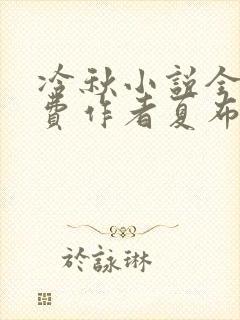 冷秋小説全
費作者夏布
於詠琳